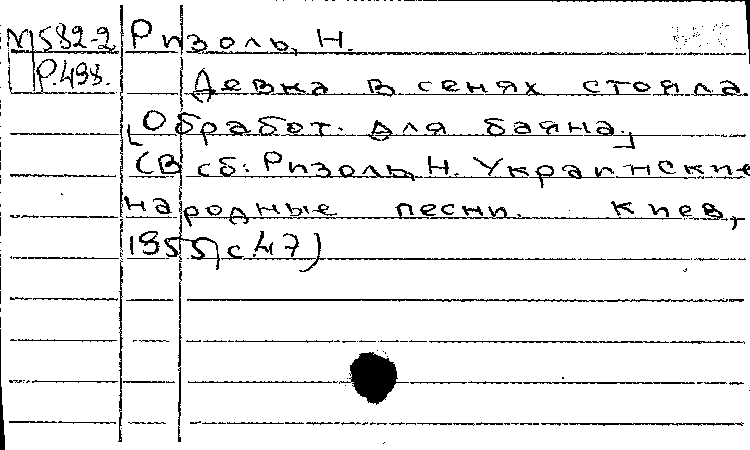 М582-2 Ризоль, Н.
Р.498. Девка в сенях стояла.
[Обработ. для баяна.]
(В сб: Ризоль, Н. Украинские
народные песни. Киев,
1955, с.47)